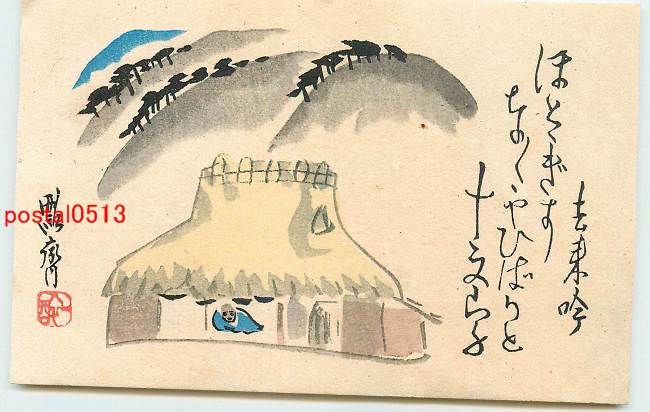 去来吟
ほとゝぎす
なくやひばりと
十文字
postal0513